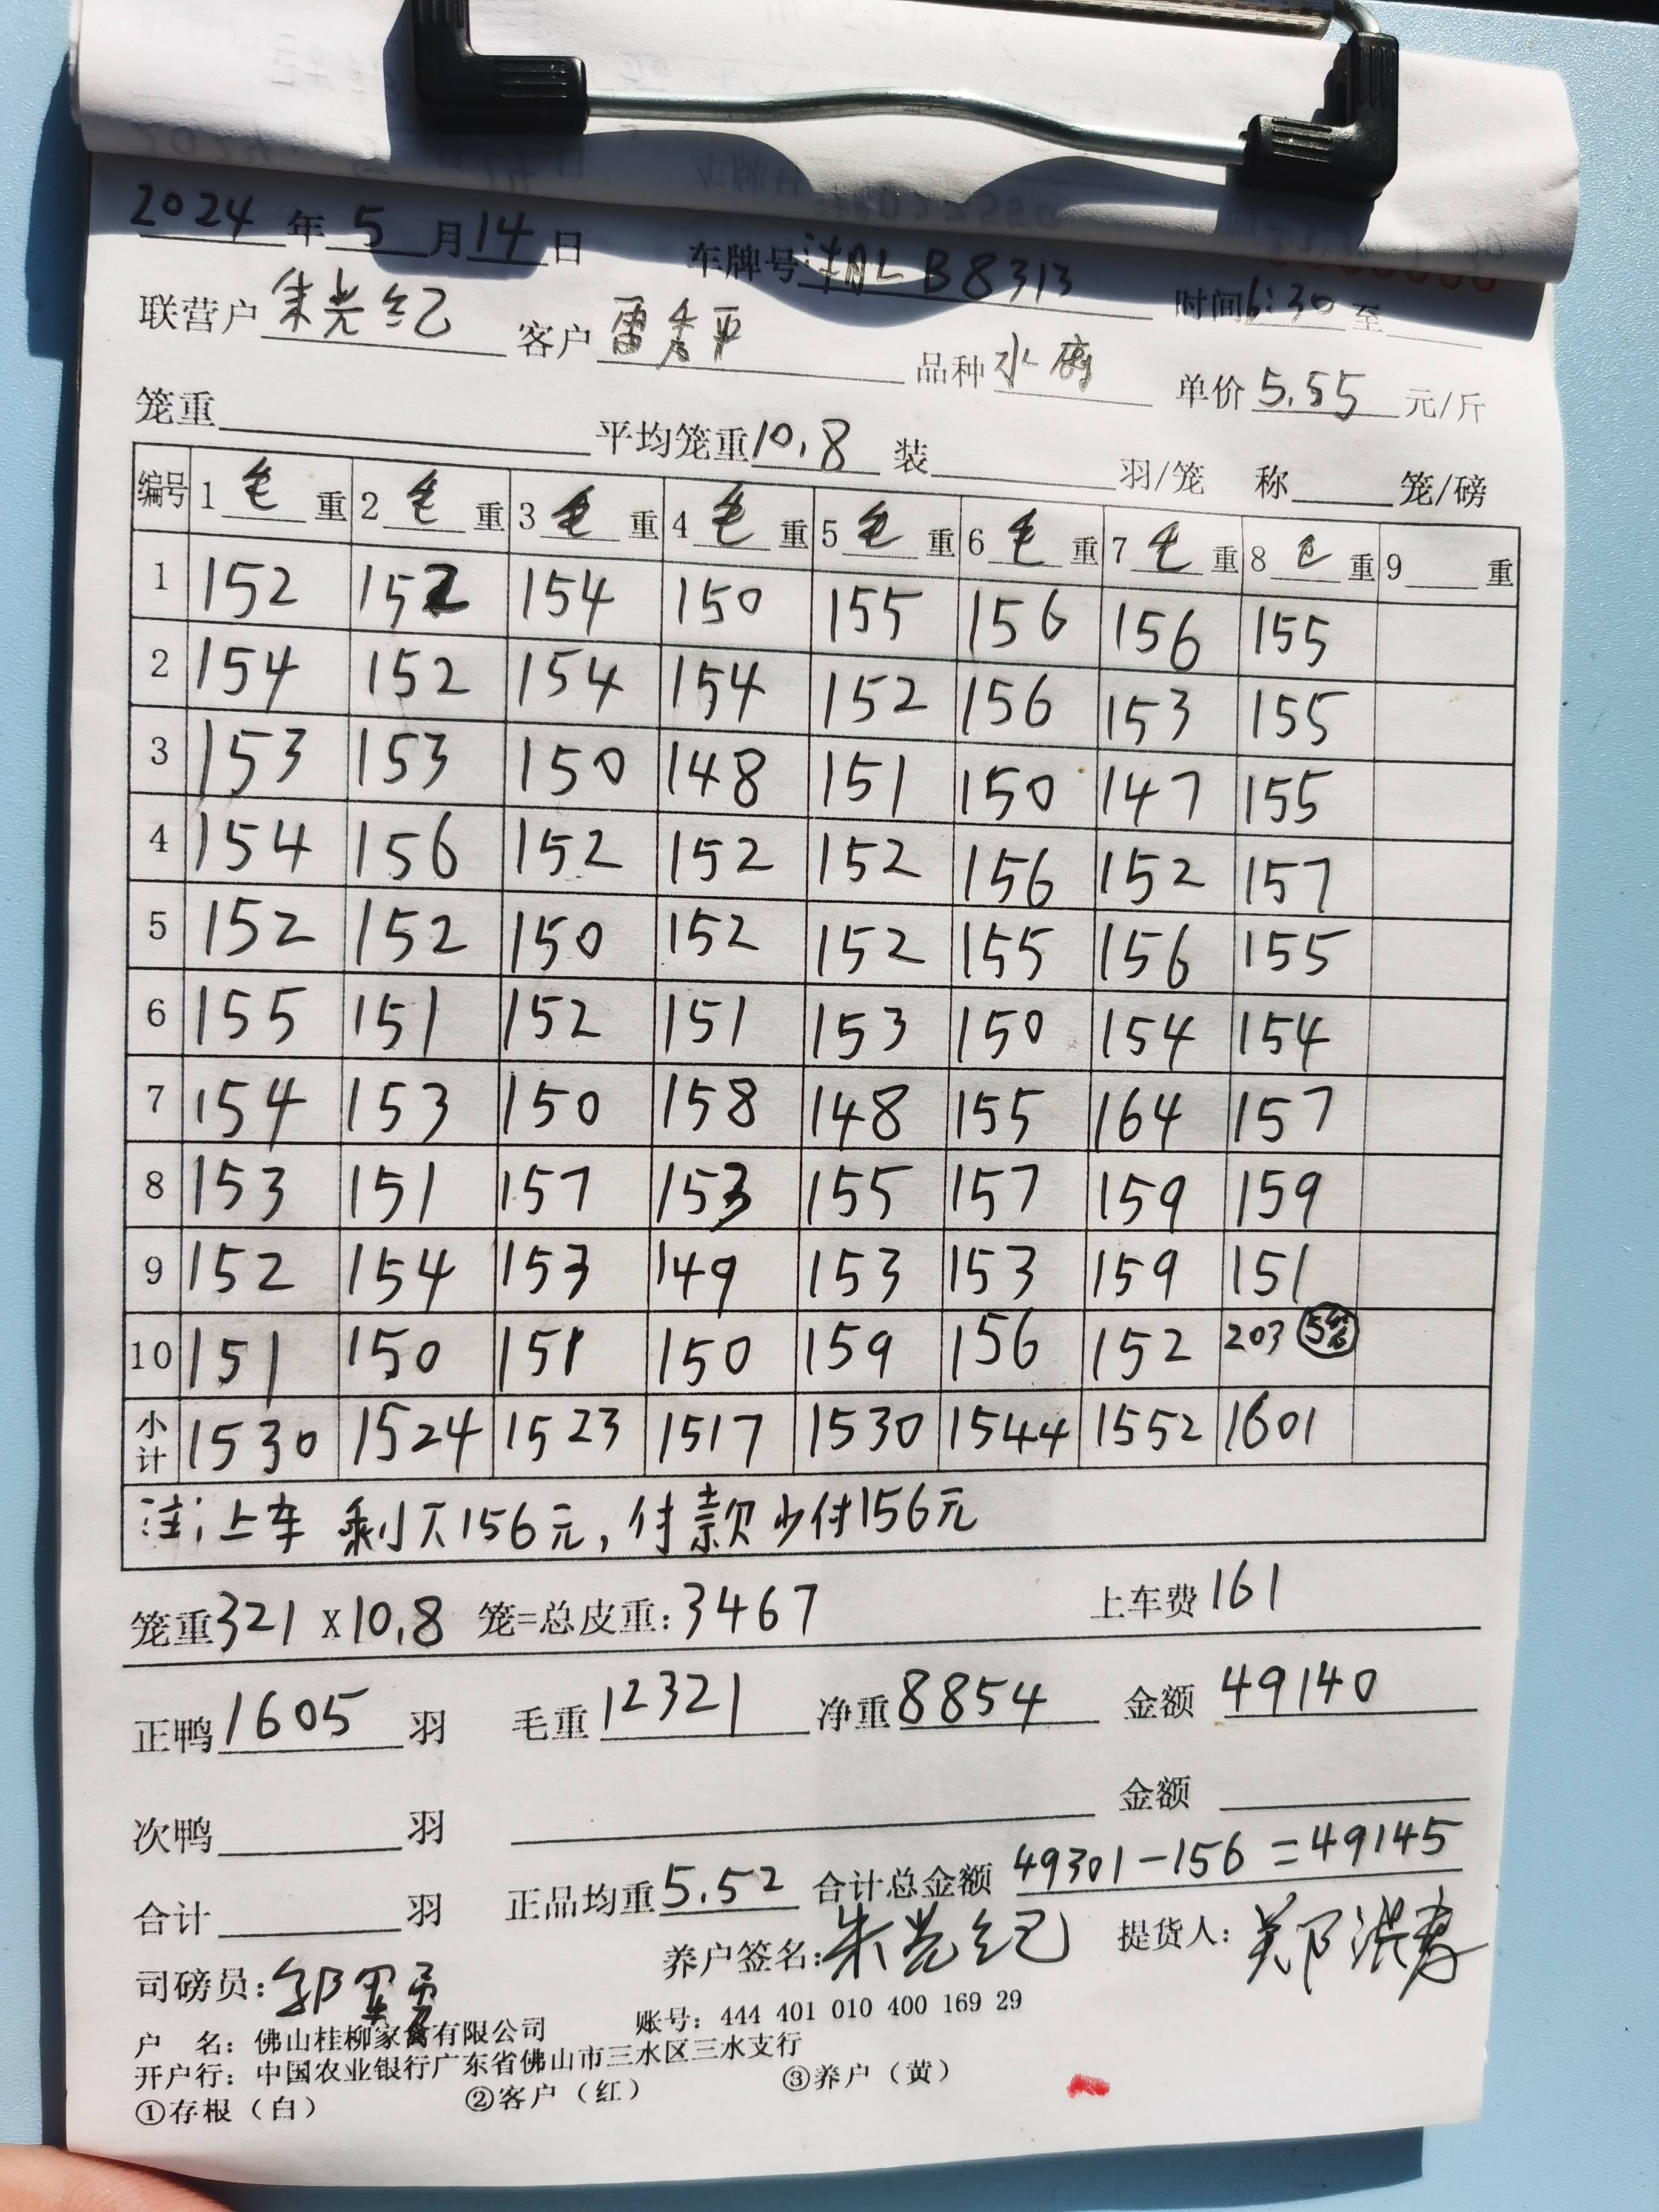 2024年5月14日 车牌号 湘L B8313 时间6:30至
联营户 朱光纪 客户 雷秀平 品种 水鸭 单价5.55元/斤
笼重 平均笼重10.8 装 羽/笼 称 笼/磅
编号 1毛重 2毛重 3毛重 4毛重 5毛重 6毛重 7毛重 8毛重 9 重
1 152 152 154 150 155 156 156 155
2 154 152 154 154 152 156 153 155
3 153 153 150 148 151 150 147 155
4 154 156 152 152 152 156 152 157
5 152 152 150 152 152 155 156 155
6 155 151 152 151 153 150 154 154
7 154 153 150 158 148 155 164 157
8 153 151 157 153 155 157 159 159
9 152 154 153 149 153 153 159 151
10 151 150 151 150 159 156 152 203 5笼
小计 1530 1524 1523 1517 1530 1544 1552 1601
注:上车剩下156元,付款少付156元
笼重321X10.8笼=总皮重:3467 上车费161
正鸭1605羽 毛重12321 净重8854 金额49140
次鸭 羽 金额
合计 羽 正品均重5.52 合计总金额49301-156=49145
司磅员: 养户签名:朱光纪 提货人:郑洪
户 名:佛山桂柳家禽有限公司 账号:444 401 010 400 169 29
开户行:中国农业银行广东省佛山市三水区三水支行
①存根(白) ②客户(红) ③养户(黄)